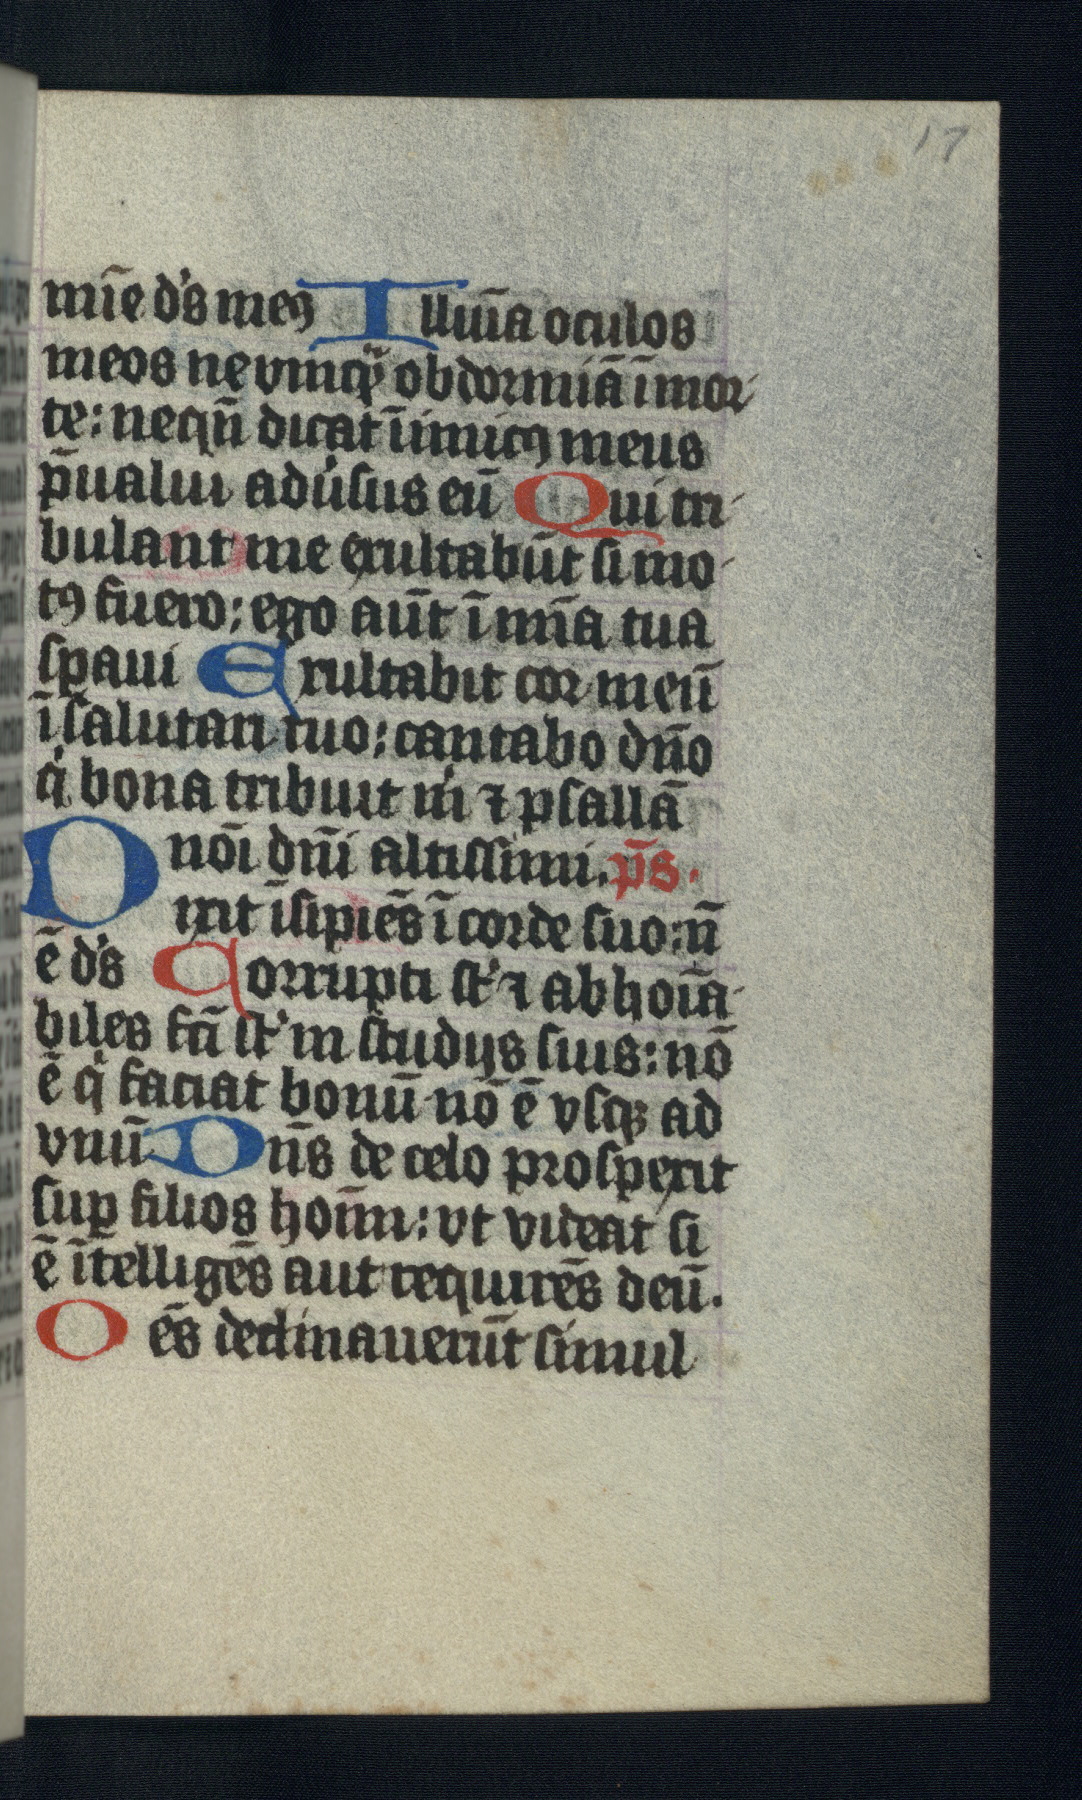 17
mīe ds meꝰ Illuīa oculos
meos ne vmꝗ̄ obdormiā ī mor
te: neqn̄ dicat īimicꝰ meus
p̄ualui adūsus eū Qui tri
bulant me exultabūt si mo
tꝰ fuero: ego aūt ī mīa tua
spaui Exultabit cor meū
ī salutari tuo: cantabo dn̄o
qͥ bona tribuit mͥ ⁊ psallā
noī dn̄i altissimi. p̄s.
Dixit īsipiēs ī corde suo: n̄
ē ds Corrupti st ⁊ abhoīa
biles fc̄i st in studijs suis: nō
ē qͥ faciat bonū nō ē vsqꝫ ad
vnū Dn̄s de celo prospexit
suꝑ filios hoīm: vt videat si
ē ītelligēs aut requirēs deū.
Oēs declinauerūt simul